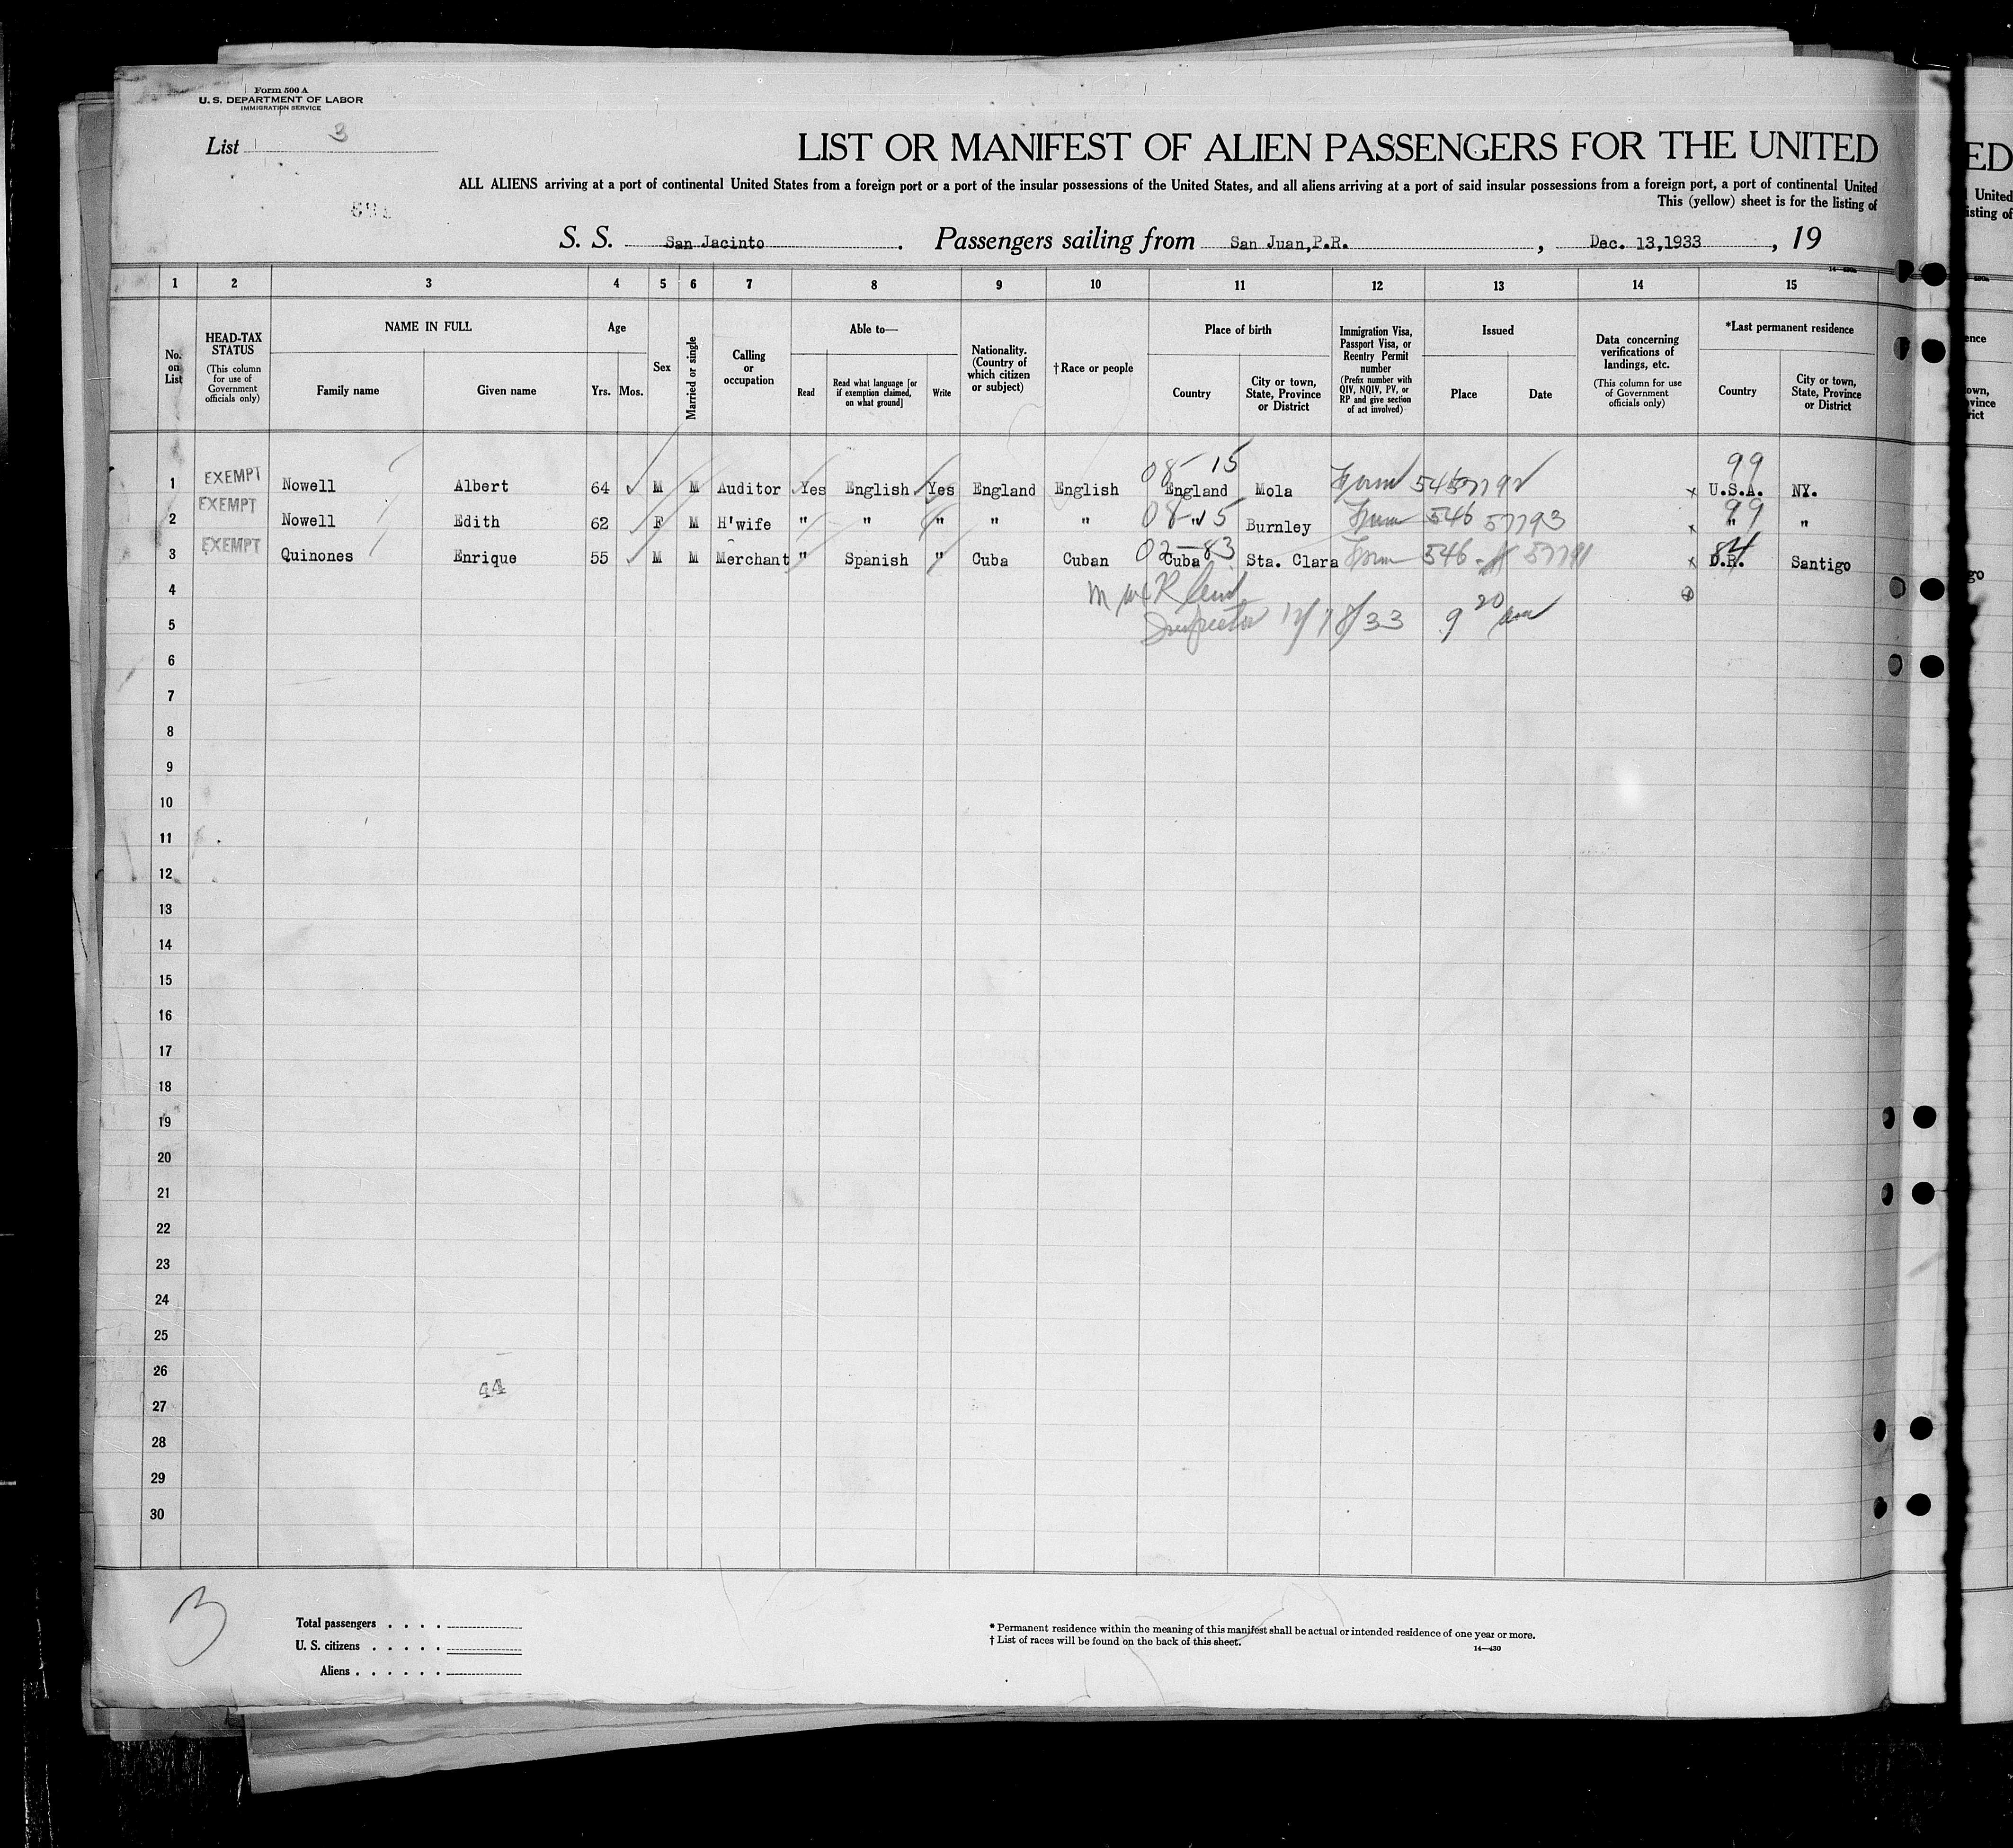 Form 500 A
U. S. DEPARTMENT OF LABOR
IMMIGRATION SERVICE
List 3
LIST OR MANIFEST OF ALIEN PASSENGERS FOR THE UNITED
ALL ALIENS arriving at a port of continental United States from a foreign port or a port of the insular possessions of the United States, and all aliens arriving at a port of said insular possessions from a foreign port, a port of continental United
This (yellow) sheet is for the listing of
S. S. San Jacinto. Passengers sailing from San Juan,P.R., Dec. 13,1933, 19
1 2 3 4 5 6 7 8 9 10 11 12 13 14 15
No. on List
HEAD-TAX STATUS (This column for use of Government officials only)
NAME IN FULL
Family name
Given name
Age
Yrs. Mos.
Sex
Married or single
Calling or occupation
Able to—
Read
Read what language [or if exemption claimed, on what ground]
Write
Nationality. (Country of which citizen or subject)
†Race or people
Place of birth
Country
City or town, State, Province or District
Immigration Visa, Passport Visa, or Reentry Permit number (Prefix number with QIV, NQIV, PV, or RP and give section of act involved)
Issued
Place
Date
Data concerning verifications of landings, etc. (This column for use of Government officials only)
*Last permanent residence
Country
City or town, State, Province or District
08-15 99
1 EXEMPT Nowell Albert 64 M M Auditor Yes English Yes England English England Mola Form 546 57792 x U.S.A. NY.
08-15 99
2 EXEMPT Nowell Edith 62 F M H'wife " " " " " " Burnley Form 546 57793 x " "
02-83 84
3 EXEMPT Quinones Enrique 55 M M Merchant " Spanish " Cuba Cuban Cuba Sta. Clara Form 546 57791 x D.R. Santigo
4
5 Inspector 12/18/33 9 20 am
6
7
8
9
10
11
12
13
14
15
16
17
18
19
20
21
22
23
24
25
26
44
27
28
29
30
3
Total passengers . . . .
U. S. citizens . . . . .
Aliens . . . . . .
* Permanent residence within the meaning of this manifest shall be actual or intended residence of one year or more.
† List of races will be found on the back of this sheet.
14—430